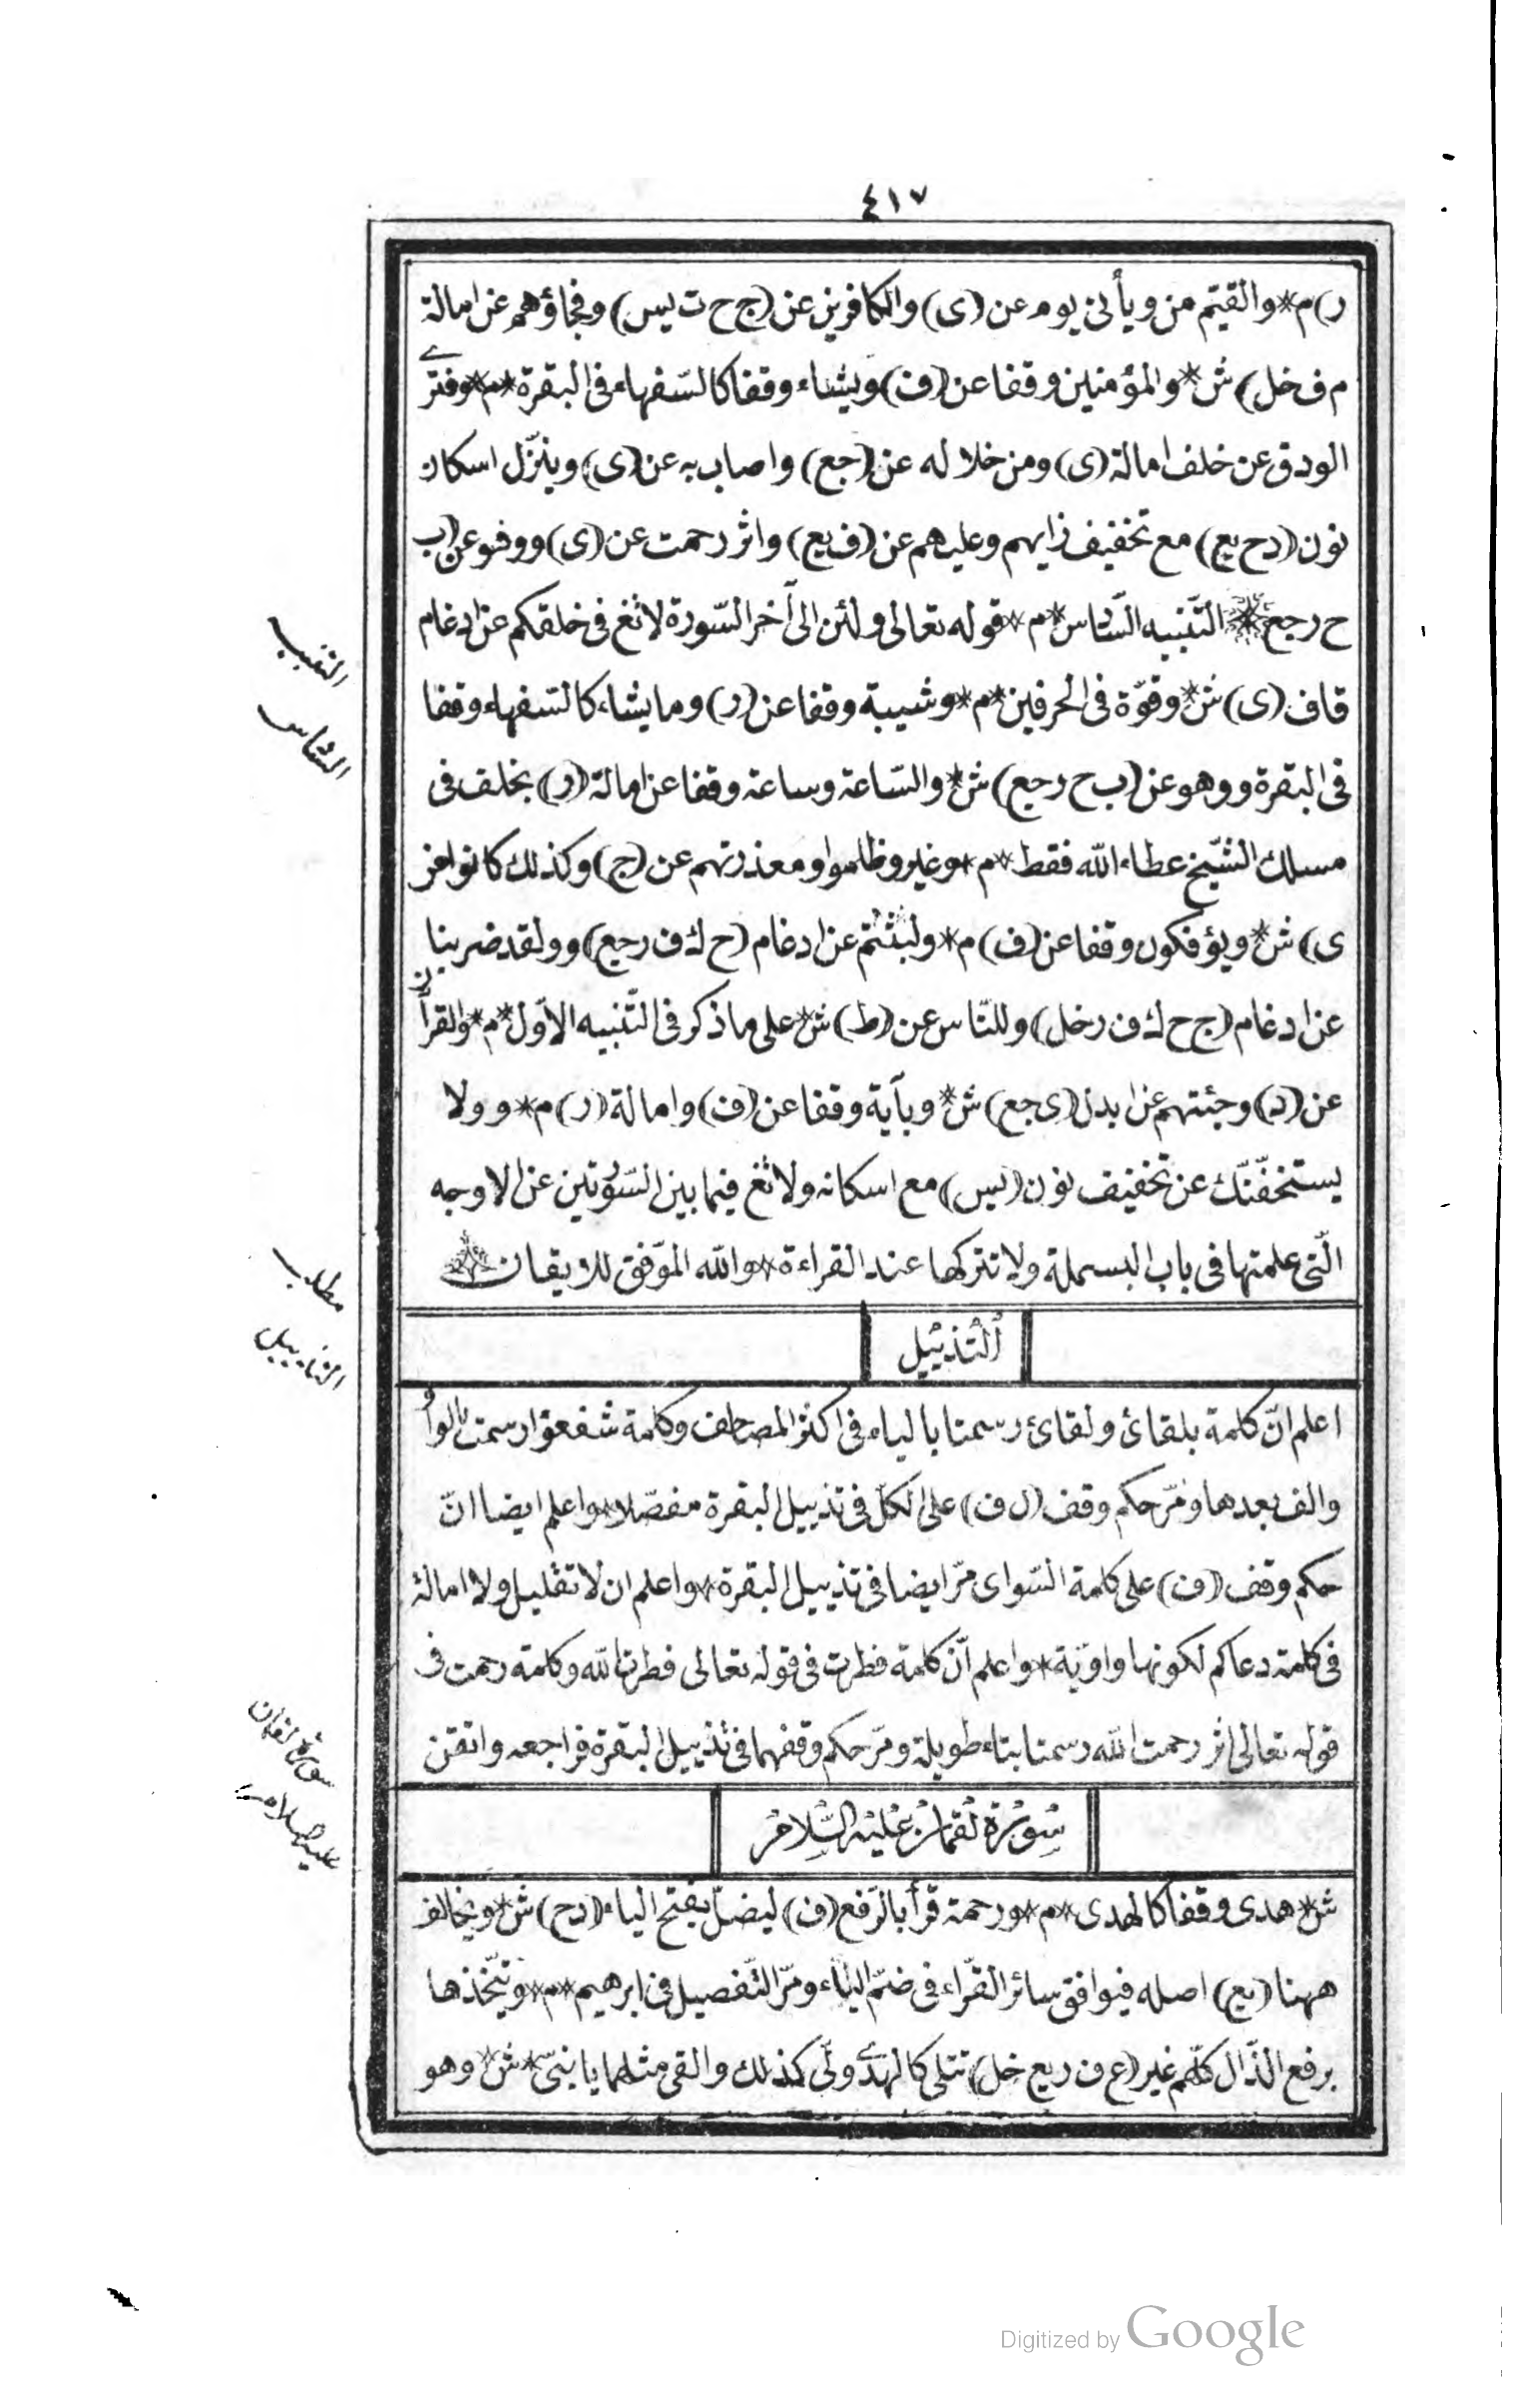 ٤١٧
ر) م * والقيّم من ويأتى يوم عن (ى) والكافرين عن (ج ح ت يس) وفجاؤهم عن امالة
م ف خل) ش * والمؤمنين وقفا عن (ف) ويشاء وقفا كالسّفهاء فى البقرة * م * وفترى
الودق عن خلف امالة (ى) ومن خلاله عن (جع) واصاب به عن (ى) وينزّل اسكان
نون (دح يع) مع تخفيف زايهم وعليهم عن (ف يع) واثر رحمت عن (ى) ووهو عن (ب
ح رجع * التّنبيه السّادس * م * قوله تعالى ولئن الى آخر السّورة لا تغ فى خلقكم عن ادغام
قاف (ى) ش * وقوّة فى الحرفين * م * وشيبة وقفا عن (ر) وما يشاء كالسّفهاء وقفا
فى البقرة ووهو عن (ب ح رجع) ش * والسّاعة وساعة وقفا عن امالة (ر) بخلف فى
مسلك الشّيخ عطاء الله فقط * م * وغير وظلموا ومعذرتهم عن (ج) وكذلك كانوا عن
ى) ش * ويؤفكون وقفا عن (ف) م * ولبثتم عن ادغام (ح ك ف رجيع) وولقد ضربنا
عن ادغام (ج ح ك ف رخل) وللنّاس عن (ط) ش * على ما ذكر فى التّنبيه الاوّل * م * والقرآن
عن (د) وجئتهم عن ابدل (ى جع) ش * وبآية وقفا عن (ف) وامالة (ر) م * وولا
يستخفّنّك عن تخفيف نون (يس) مع اسكانه ولا تغ فيما بين السّورتين عن الاوجه
الّتى علمتها فى باب البسملة ولا تتركها عند القراءة * والله الموّفق للايقان
التّذييل
اعلم انّ كلمة بلقائ ولقائ رسمتا بالياء فى اكثر المصاحف وكلمة شفعؤا رسمت بالواو
والف بعدها ومرّ حكم وقف (ل ف) على الكلّ فى تذييل البقرة مفصّلا * واعلم ايضا انّ
حكم وقف (ف) على كلمة السّواى مرّ ايضا فى تذييل البقرة * واعلم ان لا تقليل ولا امالة
فى كلمة دعاكم لكونها واويّة * واعلم انّ كلمة فطرت فى قوله تعالى فطرت الله وكلمة رحمت فى
قوله تعالى اثر رحمت الله رسمتا بتاء طويلة ومرّ حكم وقفهما فى تذييل البقرة فراجعه واتقن
سورة لقمان عليه السّلام
ش * هدى وقفا كالهدى * م * ورحمة قرأ بالرّفع (ف) ليضلّ بفتح الياء (دح) ش * ويخالف
ههنا (يع) اصله فيوافق سائر القرّاء فى ضمّ الياء ومرّ التّفصيل فى ابرهيم * م * ويتّخذها
برفع الذّال كلّهم غير (ع ف ريع خل) تتلى كالهدى ولّى كذلك والقى مثلهما يا بنىّ * ش * وهو
التنبيه
السّادس
مطلب
التذييل
سورة لقمان
عليه السلام
Digitized by Google